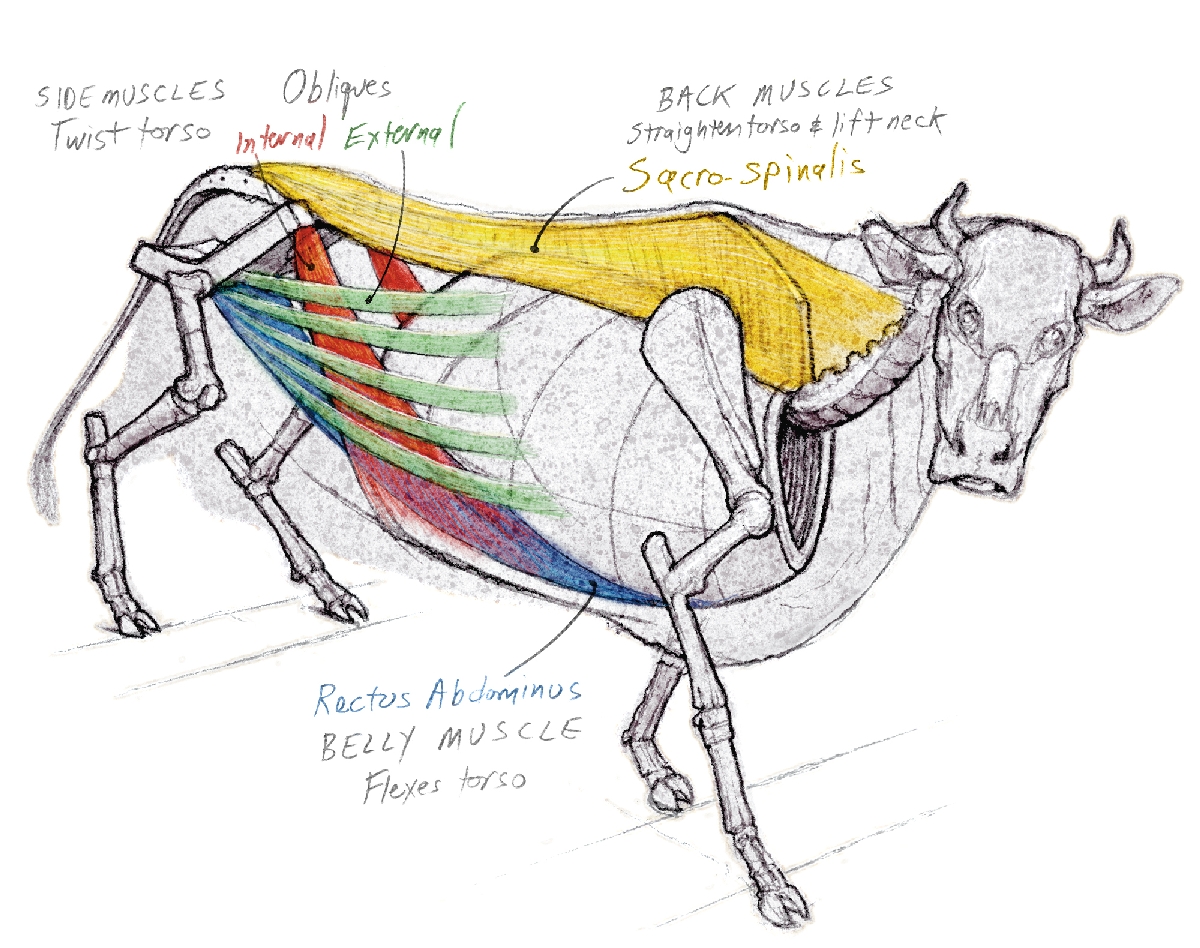 SIDE MUSCLES
Twist torso
Obliques
Internal External
BACK MUSCLES
Straighten torso & lift neck
Sacro-spinalis
Rectus Abdominus
BELLY MUSCLE
Flexes torso